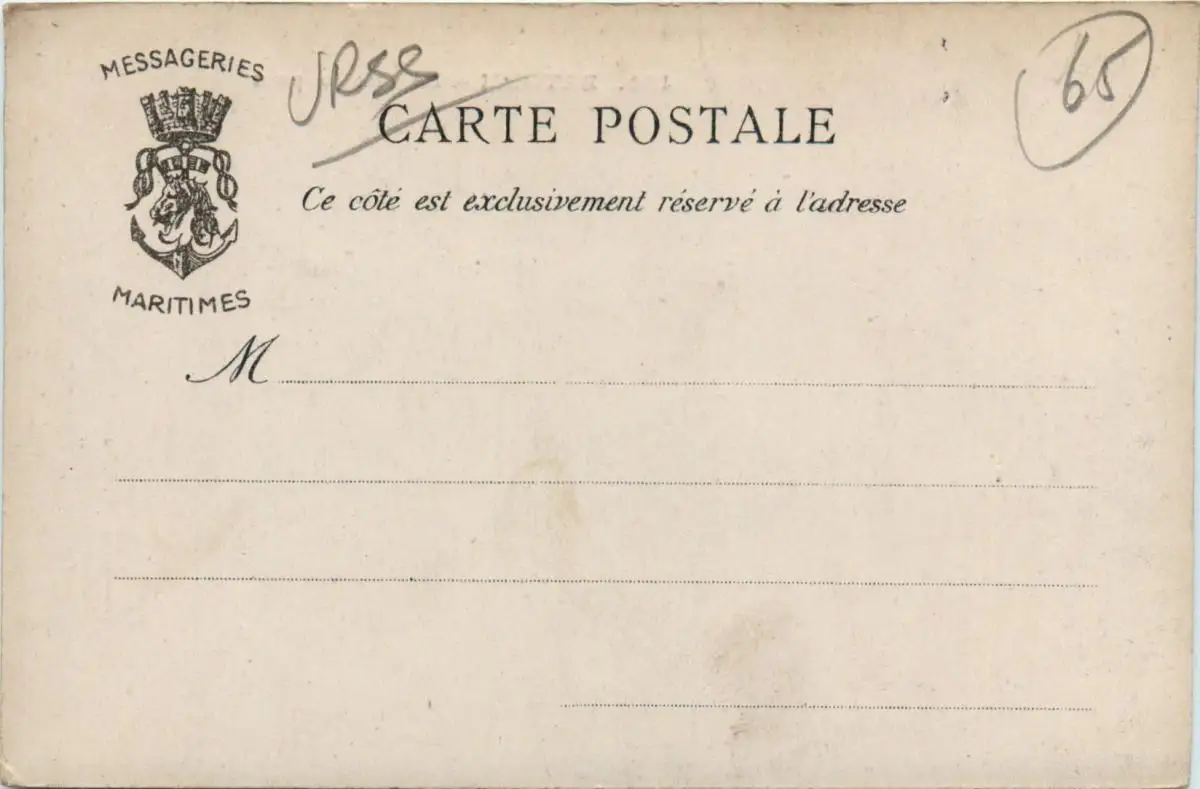 MESSAGERIES
MARITIMES
URSS
65
CARTE POSTALE
Ce côté est exclusivement réservé à l'adresse
M